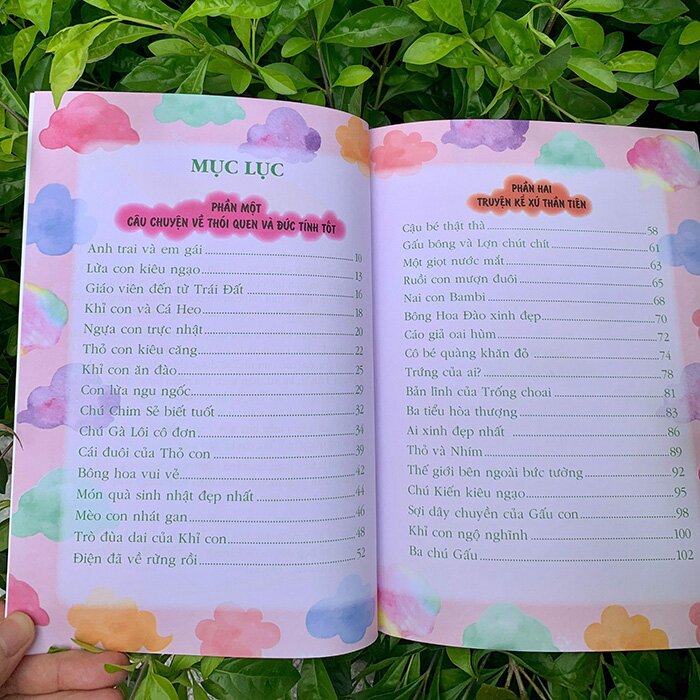 MỤC LỤC
PHẦN MỘT
CÂU CHUYỆN VỀ THÓI QUEN VÀ ĐỨC TÍNH TỐT
Anh trai và em gái 10
Lừa con kiêu ngạo 13
Giáo viên đến từ Trái Đất 16
Khỉ con và Cá Heo 18
Ngựa con trực nhật 20
Thỏ con kiêu căng 22
Khỉ con ăn đào 25
Con lừa ngu ngốc 29
Chú Chim Sẻ biết tuốt 32
Chú Gà Lôi cô đơn 34
Cái đuôi của Thỏ con 39
Bông hoa vui vẻ 42
Món quà sinh nhật đẹp nhất 44
Mèo con nhát gan 46
Trò đùa dai của Khỉ con 48
Điện đã về rừng rồi 52
PHẦN HAI
TRUYỆN KỂ XỨ THẦN TIÊN
Cậu bé thật thà 58
Gấu bông và Lợn chút chít 61
Một giọt nước mắt 63
Ruồi con mượn đuôi 65
Nai con Bambi 68
Bông Hoa Đào xinh đẹp 70
Cáo giả oai hùm 72
Cô bé quàng khăn đỏ 74
Trứng của ai? 78
Bản lĩnh của Trống choai 81
Ba tiểu hòa thượng 83
Ai xinh đẹp nhất 86
Thỏ và Nhím 89
Thế giới bên ngoài bức tường 92
Chú Kiến kiêu ngạo 95
Sợi dây chuyền của Gấu con 98
Khỉ con ngộ nghĩnh 100
Ba chú Gấu 102